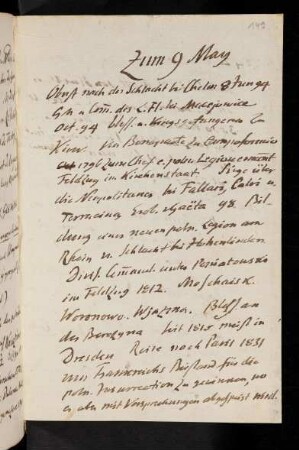 149
Zum 9 May
Obrist nach der Schlacht bei Chelm 8 Jun 94
Gen u Com. des L. Fl. bei Maciejowice
Oct. 94 bless. u. kriegsgefangener in
Kiew Bonaparte zu Campoformio
1796 zum Chef e. poln. Legion ernannt
Feldzug im Kirchenstaat Siege über
die Neapolitaner bei Fallari, Calvi u
Terracina erob. v. Gaëta 98. Bil
dung einer neuen poln. Legion am
Rhein u. Schlacht bei Hohenlinden
Divis. Command. unter Poniatowski
im Feldzug 1812. Moshaisk.
Woronowo. Wjazma. Bless. an
der Berezyna seit 1815 meist in
Dresden Reise nach Paris 1831
um Frankreichs Beistand für die
poln. Insurrection zu gewinnen, wo
er aber mit Versprechungen abgespeist wird.